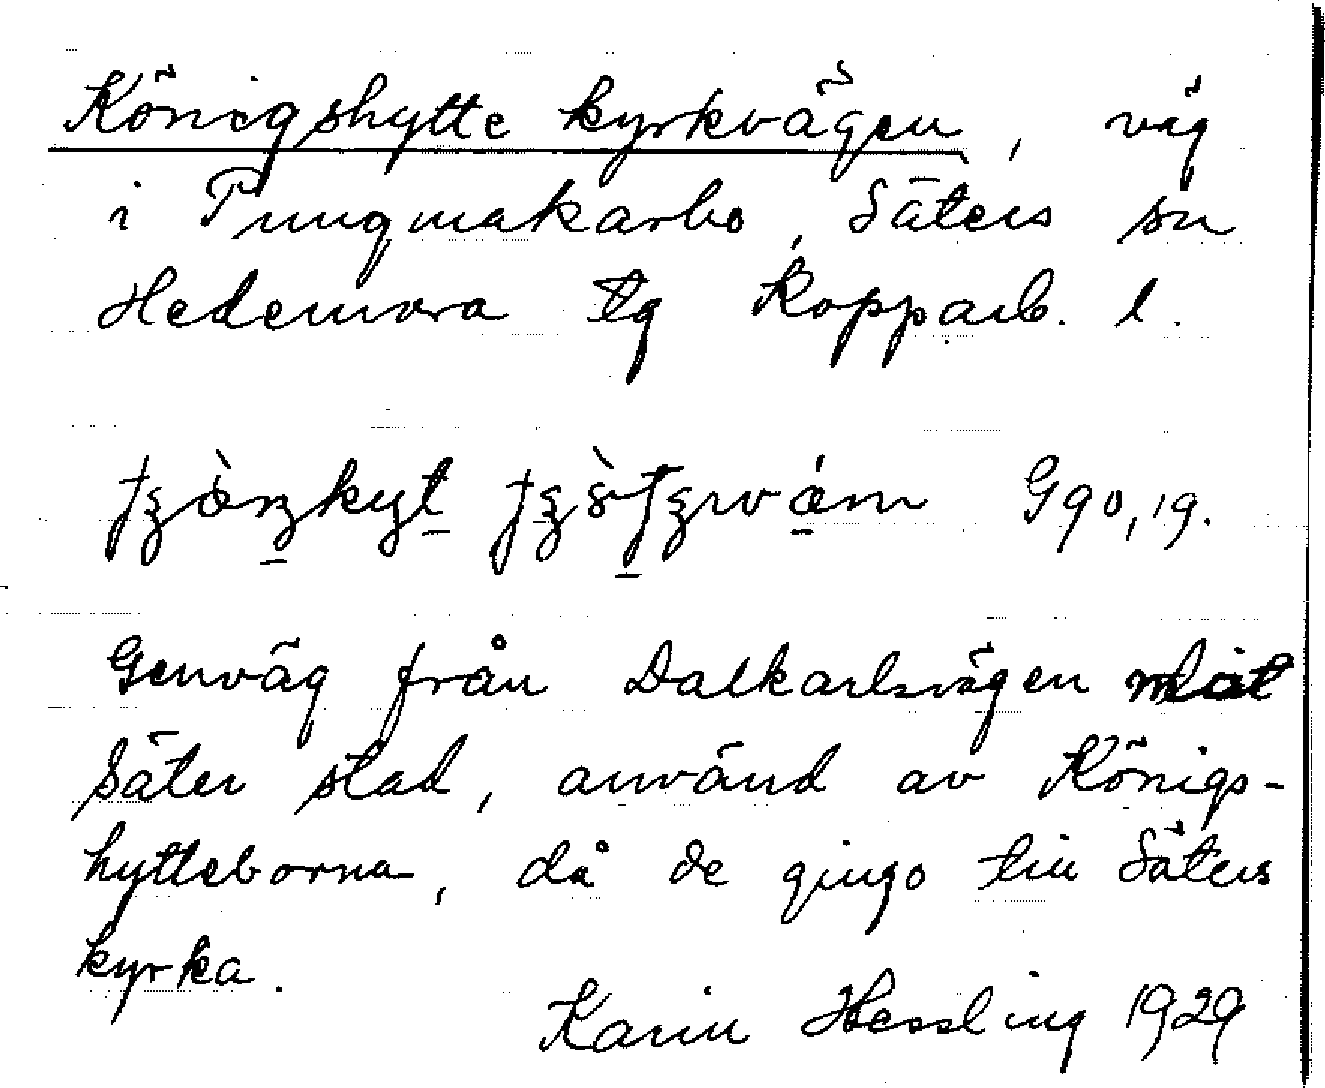 Königshytte kyrkvägen, väg
i Pungmakarbo, Säters sn
Hedemora tg Kopparb. l.
G 90, 19.
Genväg från Dalkarlsvägen mot
Säter stad, använd av Königs-
hytteborna, då de gingo till Säters
kyrka.
Karin Hessling 1929